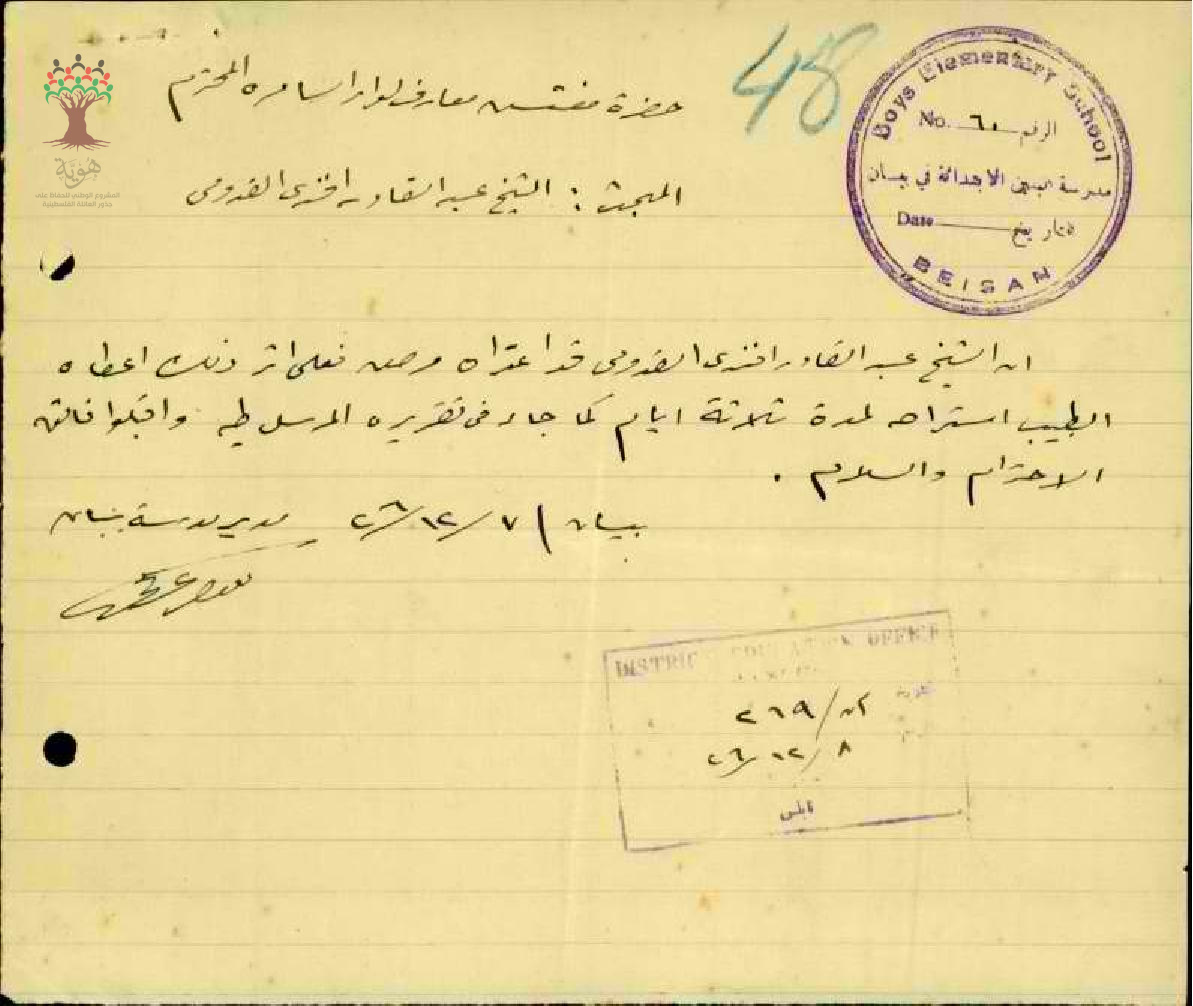 48
Boys Elementary School
No. ٦٠ الرقم
مدرسة البنين الابتدائية في بيسان
Date تاريخ
BEISAN
هُويَّة
المشروع الوطني للحفاظ على
جذور العائلة الفلسطينية
حضرة مفتش معارف لواء السامره المحترم
المبحث : الشيخ عبد القادر افندي القدومي
ان الشيخ عبد القادر افندي القدومي قد اعتراه مرض فعلى اثر ذلك اعطاه
الطبيب استراحه لمدة ثلاثة ايام كما جاء في تقريره المرسل طيه واقبلوا فائق
الاحترام والسلام .
بيسان ٧/١٢/٢٦ مدير مدرسة بيسان
DISTRICT EDUCATION OFFICE
٢٦٩
٨/١٢/٢٦
نابلس